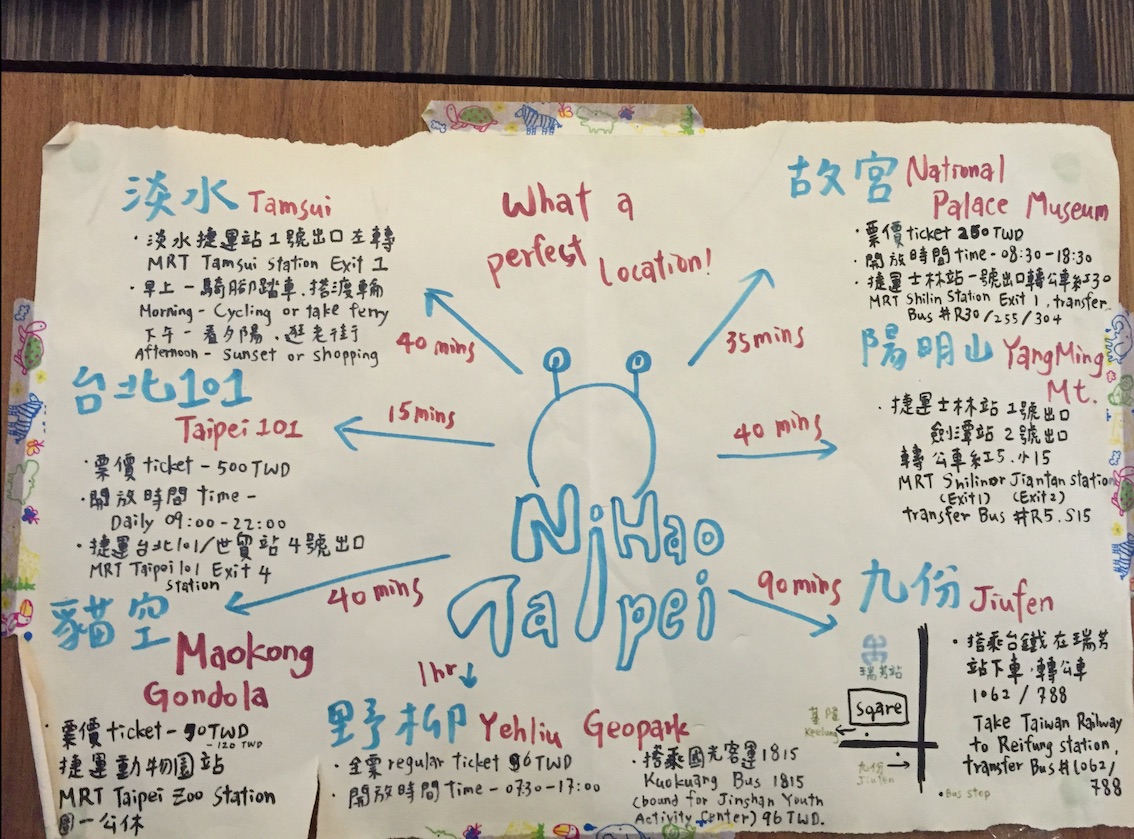 What a
perfect Location!
淡水 Tamsui
· 淡水捷運站1號出口左轉
MRT Tamsui station Exit 1
· 早上-騎腳踏車、搭渡輪
Morning - Cycling or take ferry
下午-看夕陽、逛老街
Afternoon - Sunset or shopping
40 mins
台北101
Taipei 101
· 票價 ticket - 500 TWD
· 開放時間 time -
Daily 09:00-22:00
· 捷運台北101/世貿站4號出口
MRT Taipei 101 Exit 4
station
15 mins
貓空
Maokong
Gondola
· 票價 ticket - 70TWD
-120 TWD
捷運動物園站
MRT Taipei Zoo Station
周一公休
40 mins
NiHao
Taipei
1hr
野柳 Yehliu Geopark
· 全票 regular ticket 96 TWD
· 開放時間 Time - 0730-17:00
· 搭乘國光客運1815
Kuokuang Bus 1815
(bound for Jinshan Youth
Activity Center) 96 TWD.
故宮 National
Palace Museum
· 票價 ticket 250 TWD
· 開放時間 time - 08:30-18:30
· 捷運士林站一號出口轉公車紅30
MRT Shilin Station Exit 1, transfer
Bus #R30/255/304
35 mins
陽明山 YangMing
Mt.
· 捷運士林站 1號出口
劍潭站 2號出口
轉公車紅5、小15
MRT Shilin or Jiantan station
(Exit1) (Exit2)
transfer Bus #R5. S15
40 mins
九份 Jiufen
90 mins
· 搭乘台鐵在瑞芳
站下車,轉公車
1062 / 788
Take Taiwan Railway
to Reifung station,
transfer Bus #1062/
788
瑞芳站
Sqare
基隆
Keelung
九份
Jiufen
·Bus stop